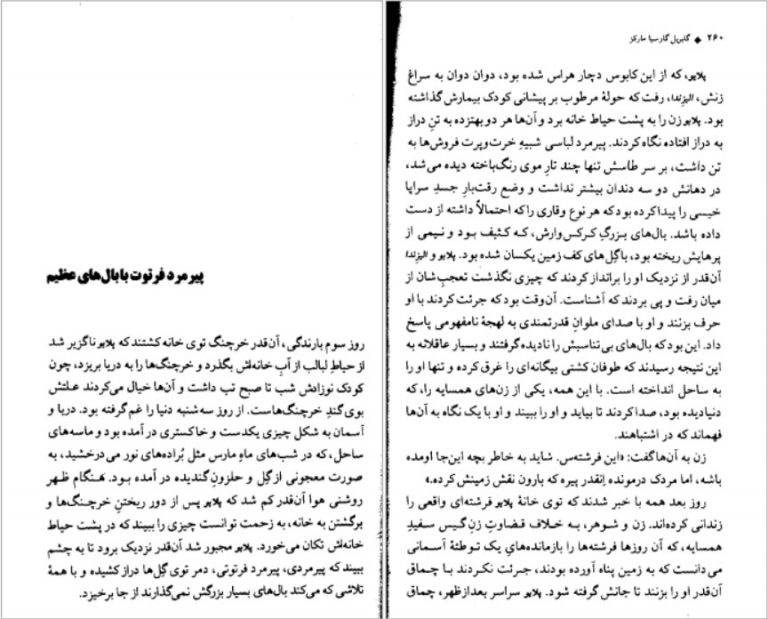 پیرمرد فرتوت با بال‌های عظیم
روز سوم بارندگی، آن‌قدر خرچنگ توی خانه کشتند که پلایو ناگزیر شد
از حیاطِ لبالب از آبِ خانه‌اش بگذرد و خرچنگ‌ها را به دریا بریزد، چون
کودک نوزادش شب تا صبح تب داشت و آن‌ها خیال می‌کردند علتش
بوی گندِ خرچنگ‌هاست. از روز سه‌شنبه دنیا را غم گرفته بود. دریا و
آسمان به شکل چیزی یکدست و خاکستری در آمده بود و ماسه‌های
ساحل، که در شب‌های ماهِ مارس مثل بُراده‌های نور می‌درخشید، به
صورت معجونی از گِل و حلزونِ گندیده در آمده بود. هنگام ظهر
روشنی هوا آن‌قدر کم شد که پلایو پس از دور ریختنِ خرچنگ‌ها و
برگشتن به خانه، به زحمت توانست چیزی را ببیند که در پشت حیاط
خانه‌اش تکان می‌خورد. پلایو مجبور شد آن‌قدر نزدیک برود تا به چشم
ببیند که پیرمردی، پیرمرد فرتوتی، دمر توی گِل‌ها دراز کشیده و با همهٔ
تلاشی که می‌کند بال‌های بسیار بزرگش نمی‌گذارند از جا برخیزد.
۲۶۰ ◆ گابریل گارسیا مارکز
پلایو، که از این کابوس دچار هراس شده بود، دوان دوان به سراغ
زنش، الیزندا، رفت که حولهٔ مرطوب بر پیشانی کودک بیمارش گذاشته
بود. پلایو زن را به پشت حیاط خانه برد و آن‌ها هر دو بهتزده به تنِ دراز
به دراز افتاده نگاه کردند. پیرمرد لباسی شبیهِ خرت‌وپرت فروش‌ها به
تن داشت، بر سر طاسش تنها چند تارِ موی رنگ‌باخته دیده می‌شد،
در دهانش دو سه دندان بیشتر نداشت و وضع رقت‌بارِ جسدِ سراپا
خیسی را پیدا کرده بود که هر نوع وقاری را که احتمالاً داشته از دست
داده باشد. بال‌های بزرگِ کرکس‌وارش، که کثیف بود و نیمی از
پرهایش ریخته بود، با گِل‌های کف زمین یکسان شده بود. پلایو و الیزندا
آن‌قدر از نزدیک او را برانداز کردند که چیزی نگذشت تعجب‌شان از
میان رفت و پی بردند که آشناست. آن‌وقت بود که جرئت کردند با او
حرف بزنند و او با صدای ملوانِ قدرتمندی به لهجهٔ نامفهومی پاسخ
داد. این بود که بال‌های بی‌تناسبش را نادیده گرفتند و بسیار عاقلانه به
این نتیجه رسیدند که طوفان کشتی بیگانه‌ای را غرق کرده و تنها او را
به ساحل انداخته است. با این همه، یکی از زن‌های همسایه را، که
دنیادیده بود، صدا کردند تا بیاید و او را ببیند و او با یک نگاه به آن‌ها
فهماند که در اشتباهند.
زن به آن‌ها گفت: «این فرشته‌س. شاید به خاطر بچه این‌جا اومده
باشه، اما مردک درمونده اِنقدر پیره که بارون نقش زمینش کرده.»
روز بعد همه با خبر شدند که توی خانهٔ پلایو فرشته‌ای واقعی را
زندانی کرده‌اند. زن و شوهر، به خلاف قضاوتِ زنِ گیس سفیدِ
همسایه، که آن روزها فرشته‌ها را بازمانده‌های یک توطئهٔ آسمانی
می‌دانست که به زمین پناه آورده بودند، جرئت نکردند با چماق
آن‌قدر او را بزنند تا جانش گرفته شود. پلایو سراسر بعدازظهر، چماق